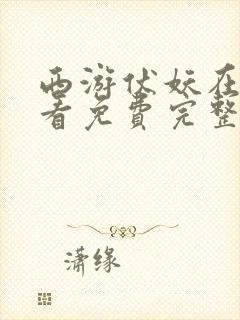 西游伏妖在
看免费完整
潇缘